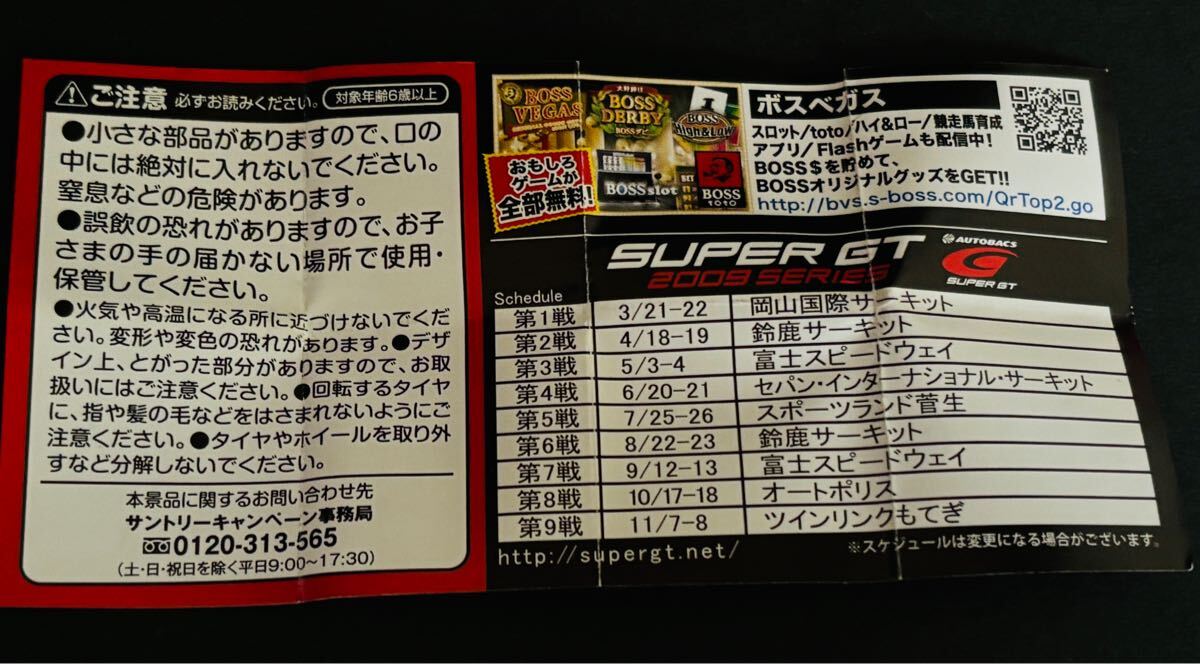 ご注意 必ずお読みください。 対象年齢6歳以上
●小さな部品がありますので、口の
中には絶対に入れないでください。
窒息などの危険があります。
●誤飲の恐れがありますので、お子
さまの手の届かない場所で使用・
保管してください。
●火気や高温になる所に近づけないでくだ
さい。変形や変色の恐れがあります。●デザ
イン上、とがった部分がありますので、お取
扱いにはご注意ください。●回転するタイヤ
に、指や髪の毛などをはさまれないようにご
注意ください。●タイヤやホイールを取り外
すなど分解しないでください。
本景品に関するお問い合わせ先
サントリーキャンペーン事務局
0120-313-565
(土・日・祝日を除く平日9:00〜17:30)
BOSS
VEGAS
BOSS
DERBY
BOSSダビ
BOSS
High&Low
おもしろ
ゲームが
全部無料!
BOSS slot
BOSS
toto
ボスベガス
スロット/toto/ハイ&ロー/競走馬育成
アプリ/Flashゲームも配信中!
BOSS$を貯めて、
BOSSオリジナルグッズをGET!!
http://bvs.s-boss.com/QrTop2.go
SUPER GT
2009 SERIES
AUTOBACS
SUPER GT
Schedule
第1戦 3/21-22 岡山国際サーキット
第2戦 4/18-19 鈴鹿サーキット
第3戦 5/3-4 富士スピードウェイ
第4戦 6/20-21 セパン・インターナショナル・サーキット
第5戦 7/25-26 スポーツランド菅生
第6戦 8/22-23 鈴鹿サーキット
第7戦 9/12-13 富士スピードウェイ
第8戦 10/17-18 オートポリス
第9戦 11/7-8 ツインリンクもてぎ
http://supergt.net/
※スケジュールは変更になる場合がございます。